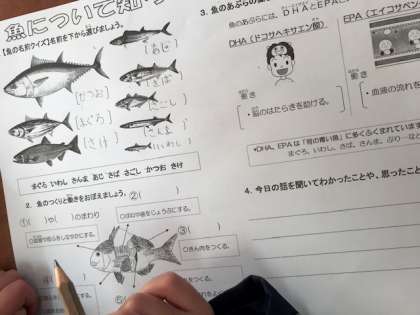 魚について知ろう
【魚の名前クイズ】名前を下から選びましょう。
(あじ)
(さば)
(かつお)
(さごし)
(まぐろ)
(さんま)
(さけ)
(いわし)
まぐろ いわし さんま あじ さば さごし かつお さけ
2. 魚のつくりと働きをおぼえましょう。
②( )
①( )や( )のまわり
○ほねや歯をじょうぶにする。
③( )
○きん肉をつくる。
④( )
をつくる。
⑤(
3.
魚のあぶらには、DHAとEPA
DHA(ドコサヘキサエン酸)
EPA(エイコサペン
働き
・脳のはたらきを助ける。
働き
・血液の流れを
・DHA、EPAは「背の青い魚」に多くふくまれています
まぐろ、いわし、さば、さんま、ぶり
4. 今日の話を聞いてわかったことや、思ったこと